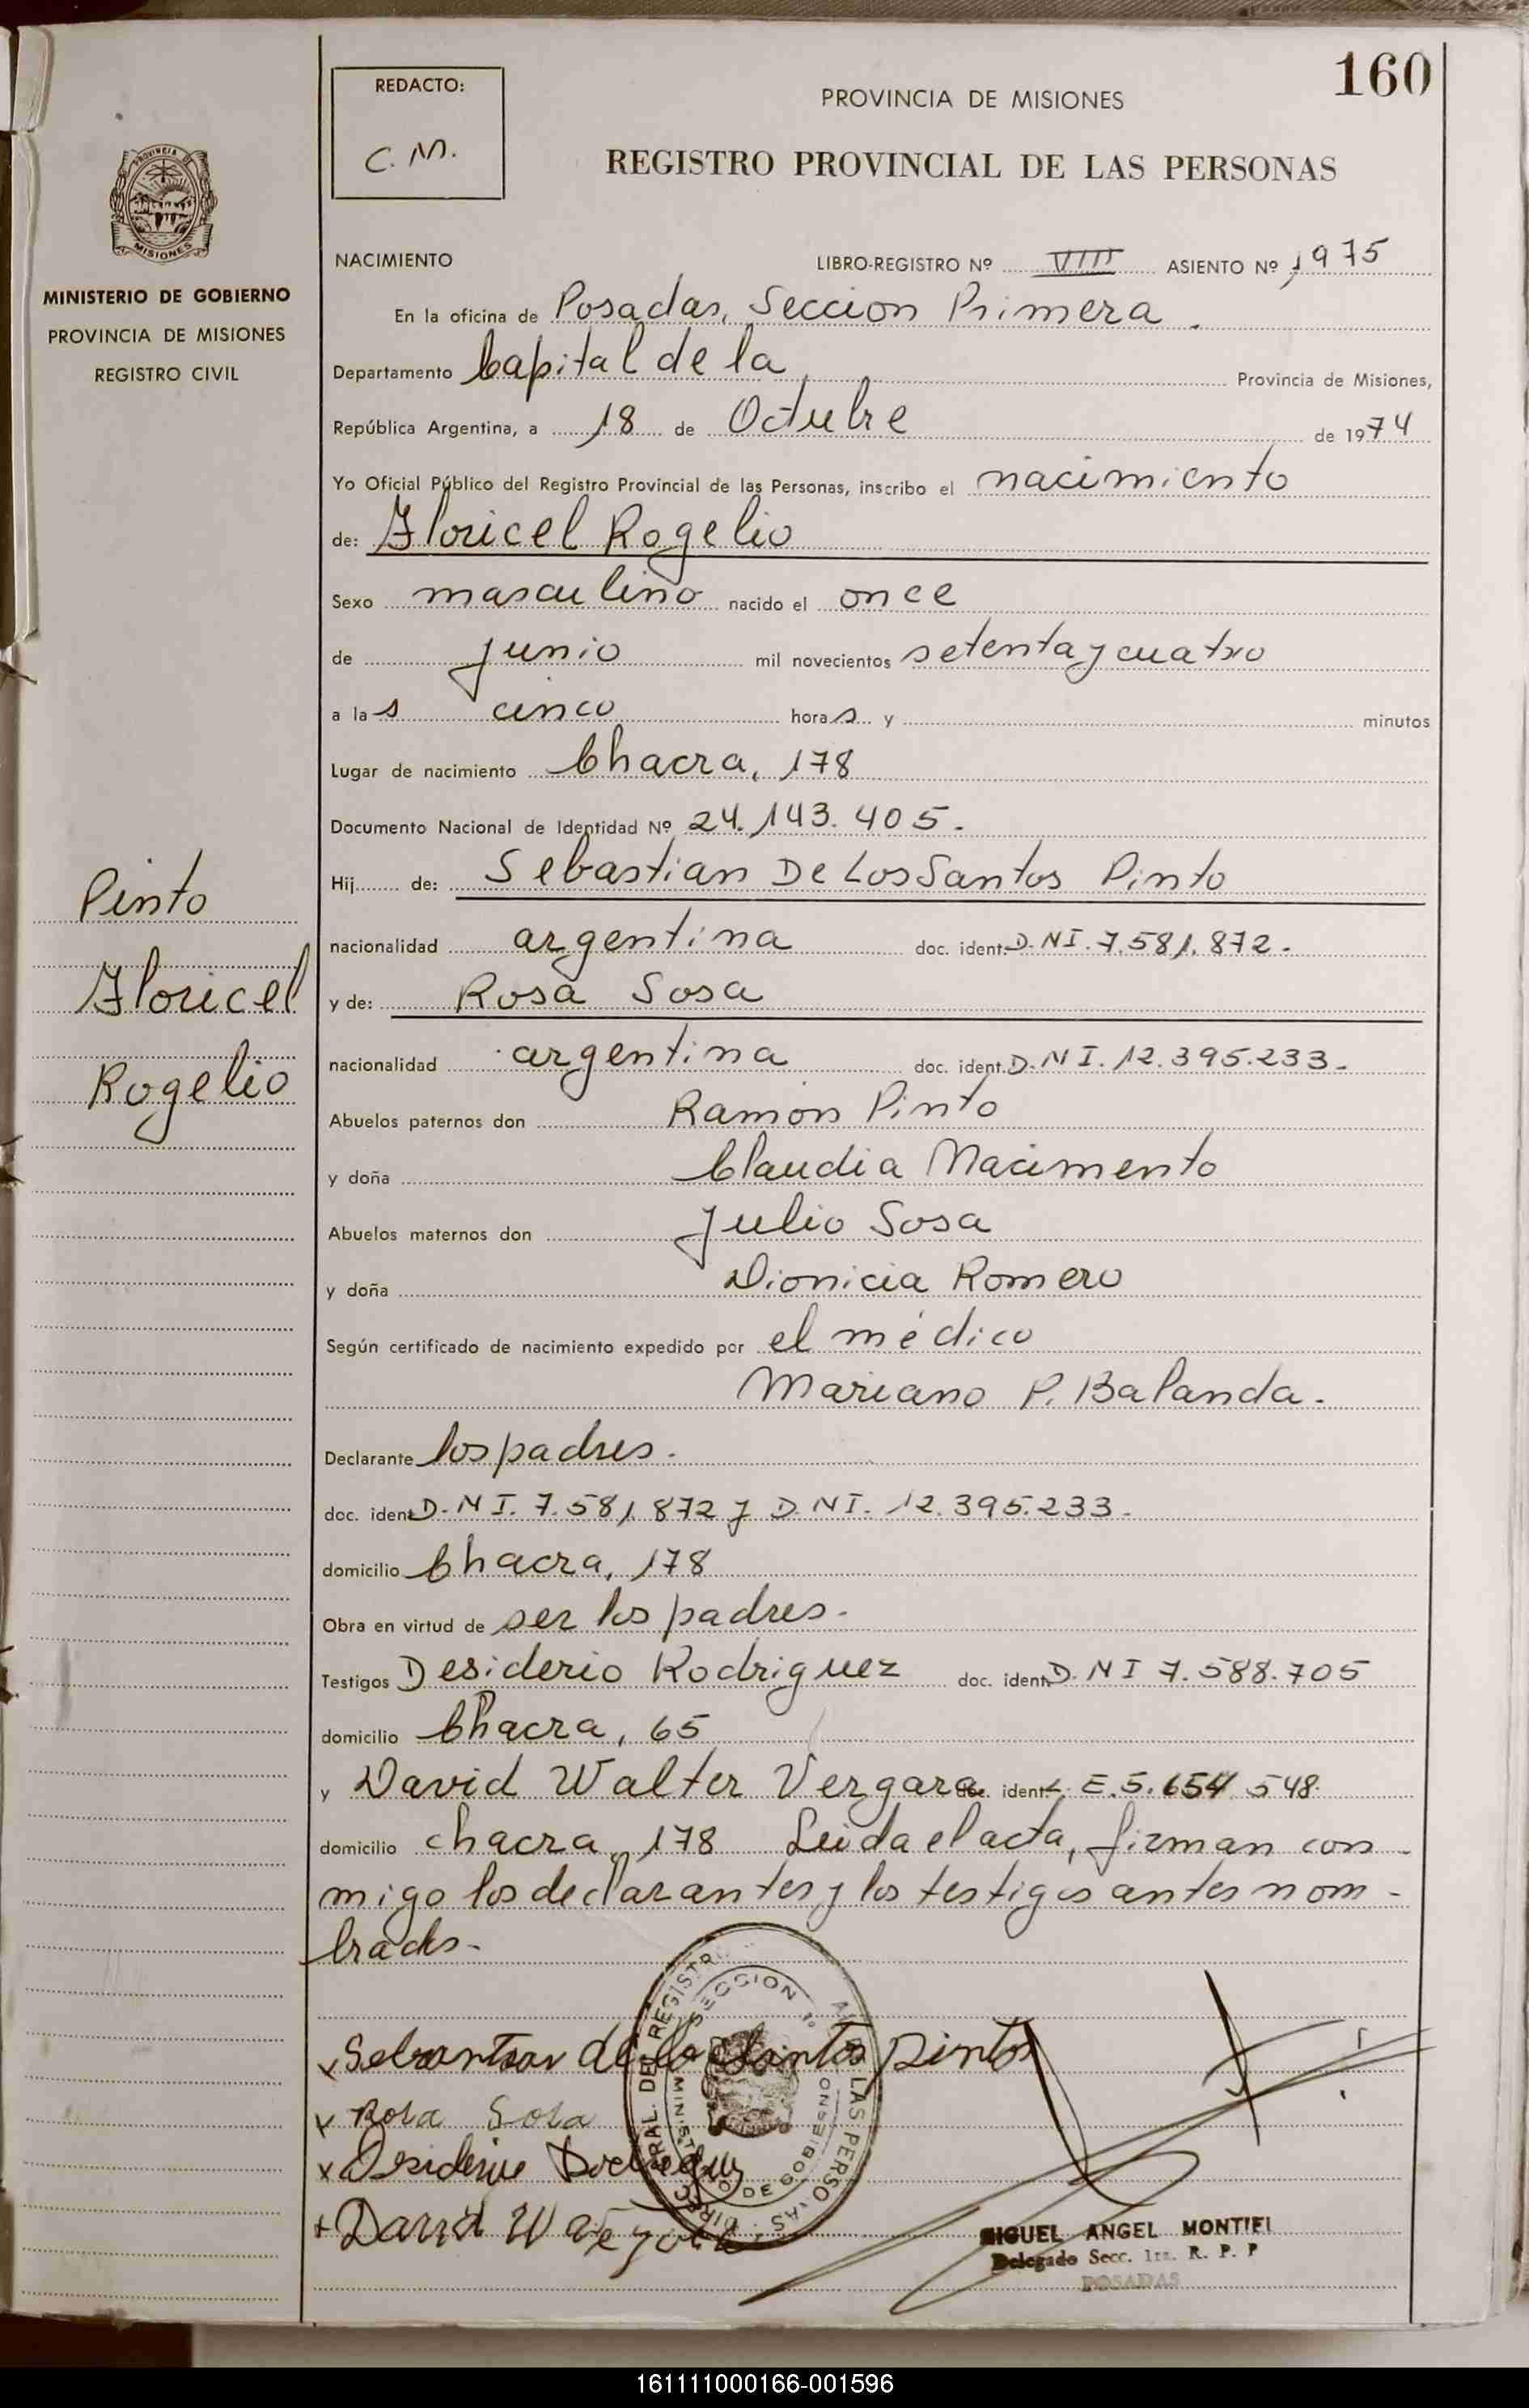 160
REDACTO:
C. M.
PROVINCIA DE MISIONES
REGISTRO PROVINCIAL DE LAS PERSONAS
PROVINCIA DE
MISIONES
MINISTERIO DE GOBIERNO
PROVINCIA DE MISIONES
REGISTRO CIVIL
NACIMIENTO LIBRO-REGISTRO Nº VIII ASIENTO Nº 1975
En la oficina de Posadas, Seccion Primera.
Departamento Capital de la Provincia de Misiones,
República Argentina, a 18 de Octubre de 1974
Yo Oficial Público del Registro Provincial de las Personas, inscribo el nacimiento
de: Floricel Rogelio
Sexo masculino nacido el once
de junio mil novecientos setenta y cuatro
a las cinco horas y minutos
Lugar de nacimiento Chacra, 178
Documento Nacional de Identidad Nº 24.143.405.
Hij de: Sebastian De Los Santos Pinto
Pinto
Floricel
Rogelio
nacionalidad argentina doc. ident. D.NI. 7.581.872.
y de: Rosa Sosa
nacionalidad argentina doc. ident. D.NI. 12.395.233.
Abuelos paternos don Ramon Pinto
y doña Claudia Nacimento
Abuelos maternos don Julio Sosa
y doña Dionicia Romero
Según certificado de nacimiento expedido por el médico
Mariano P. Balanda.
Declarante los padres.
doc. ident D.NI. 7.581.872 y D.NI. 12.395.233.
domicilio Chacra, 178
Obra en virtud de ser los padres.
Testigos Desiderio Rodriguez doc. ident D.NI 7.588.705
domicilio Chacra, 65
y David Walter Vergara doc. ident L.E. 5.654.548.
domicilio chacra, 178 Leida el acta, firman con-
migo los declarantes y los testigos antes nom-
brados.
x Sebantian de los Santos pinto
x Rosa Sosa
x Desiderio Rodriguez
+ David W Vergara
DIREC. GRAL. DEL REGISTR. LAS PERSONAS
SECCION 1º
MINISTERIO DE GOBIERNO
MIGUEL ANGEL MONTIEL
Delegado Secc. 1ra. R. P. P
POSADAS
161111000166-001596